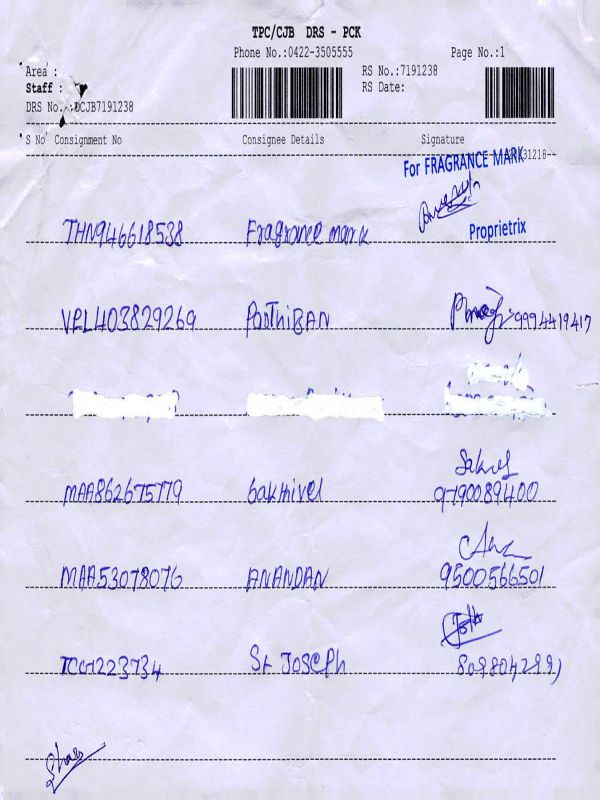 TPC/CJB DRS - PCK
Phone No.:0422-3505555 Page No.:1
Area :
Staff :
DRS No. :DCJB7191238
RS No.:7191238
RS Date:
S No Consignment No Consignee Details Signature
31218--
For FRAGRANCE MARK
Proprietrix
THN946618538 Fragrance mark
VPL403829269 PARTHIBAN 9994419417
MAA862675779 Sakthivel 9790089400
MAA53078076 ANANDAN 9500566501
223734 St JOSEPh